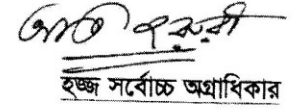 অতি জরুরী
হজ্জ সর্বোচ্চ অগ্রাধিকার